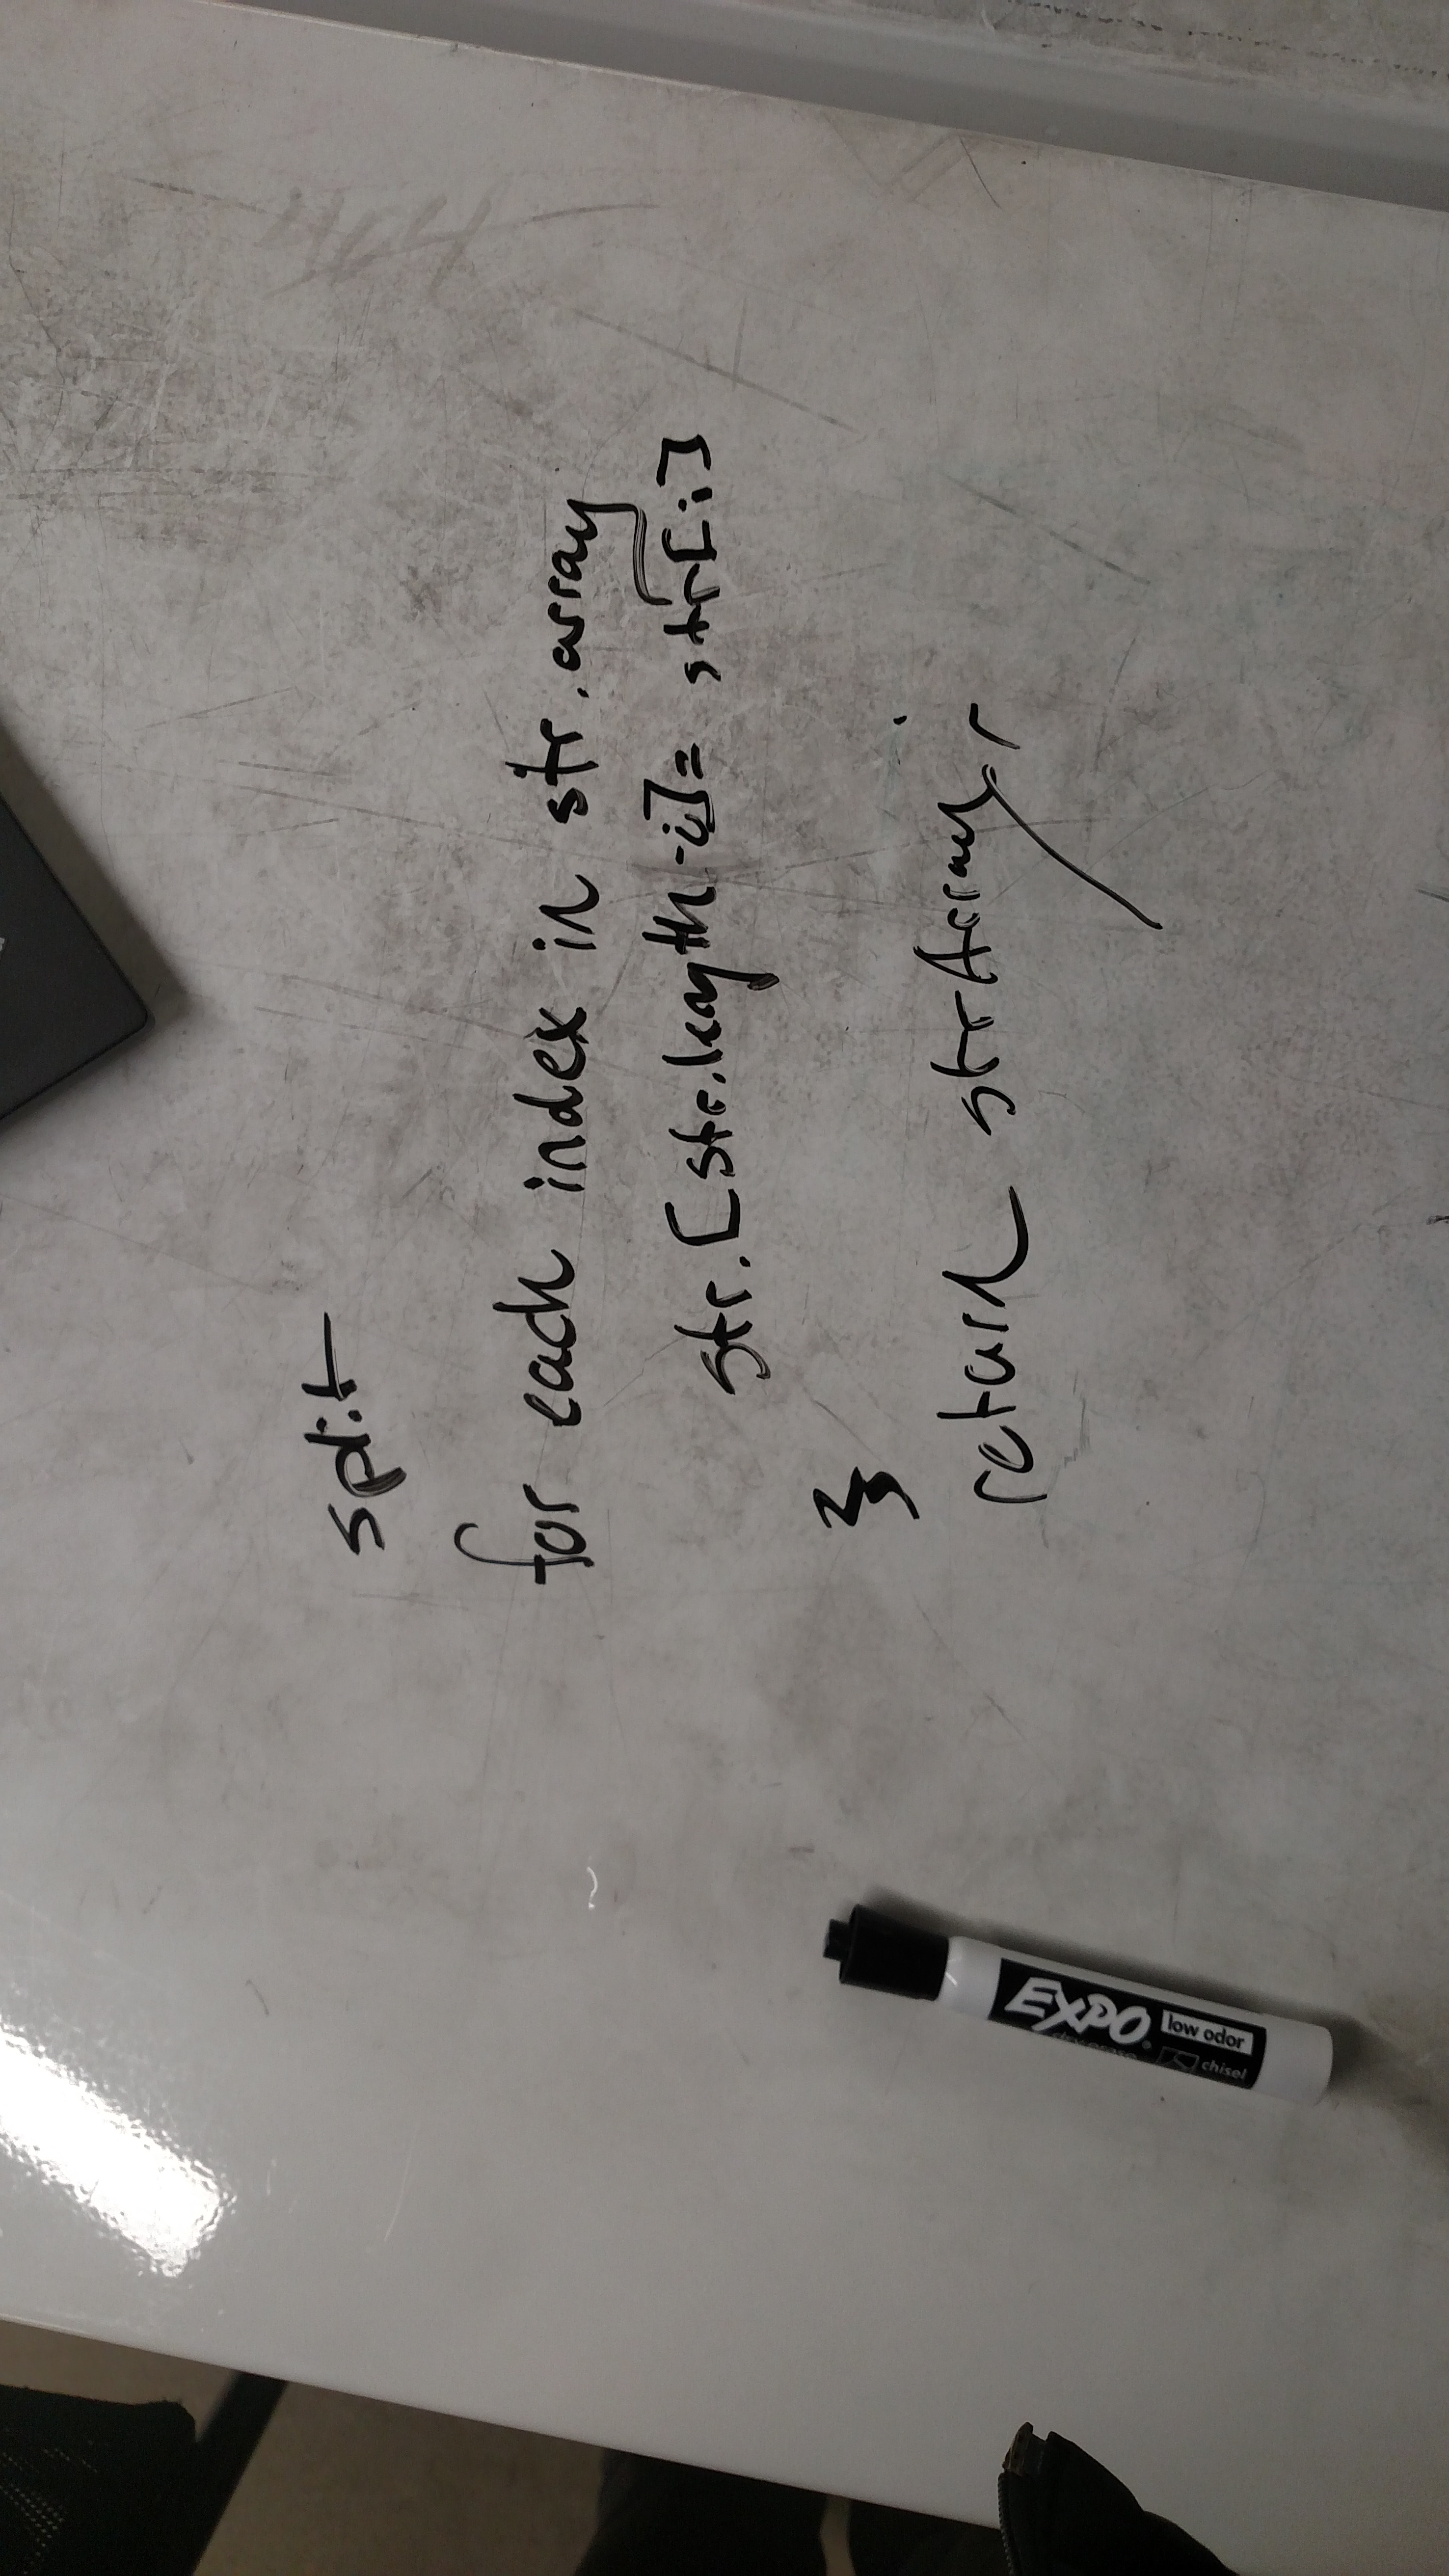 split
for each index in str.array
str.[str.length-i]= str[i]
}
return strArray;
EXPO
low odor
chisel